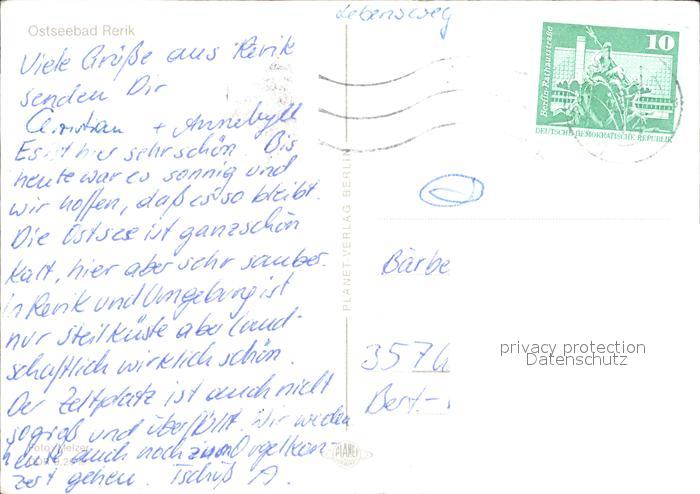 Ostseebad Rerik
Viele Grüße aus Rerik
senden Dir
Christian + Annebyll
Es ist hier sehr schön. Bis
heute war es sonnig und
wir hoffen, daß es so bleibt.
Die Ostsee ist ganz schön
kalt, hier aber sehr sauber.
In Rerik und Umgebung ist
nur Steilküste aber land-
schaftlich wirklich schön.
Der Zeltplatz ist auch nicht
so groß und überfüllt. Wir werden
heute auch noch zum Orgelkon-
zert gehen. Tschüß A.
Foto: Melzer
PLANET VERLAG BERLIN
PLANET
Lebensweg
10
Berlin-Rathausstraße
DEUTSCHE DEMOKRATISCHE REPUBLIK
Bärbe
357
Bert.-
privacy protection
Datenschutz